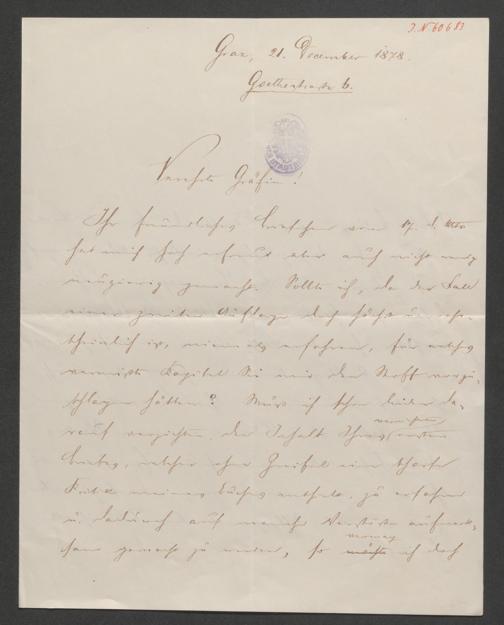 J.N. 60683
Graz, 21. December 1878.
Goethestraße 6.
Verehrte Gräfin!
Ihr freundliches Briefchen vom 17. d.
hat mich sehr erfreut aber auch nicht wenig
neugierig gemacht. Sollte ich, da der Fall
einer zweiten Auflage doch höchst unwahr-
scheinlich ist, niemals erfahren, für welches
vermißte Kapitel Sie mir den Stoff vorge-
schlagen hätten? Muß ich schon leider da-
rauf verzichten, den Inhalt Ihres ersten
vernichteten
Briefes, welcher ohne Zweifel eine scharfe
Kritik meines Buches enthielt, zu erfahren
u. dadurch auf manche Verstöße aufmerk-
sam gemacht zu werden, so möchte ich doch
vermag